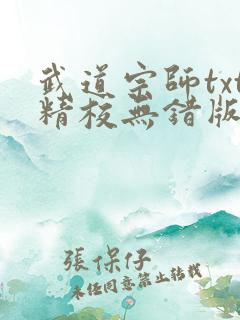 武道宗師txt
精校無錯版
張保仔
未經同意禁止轉載